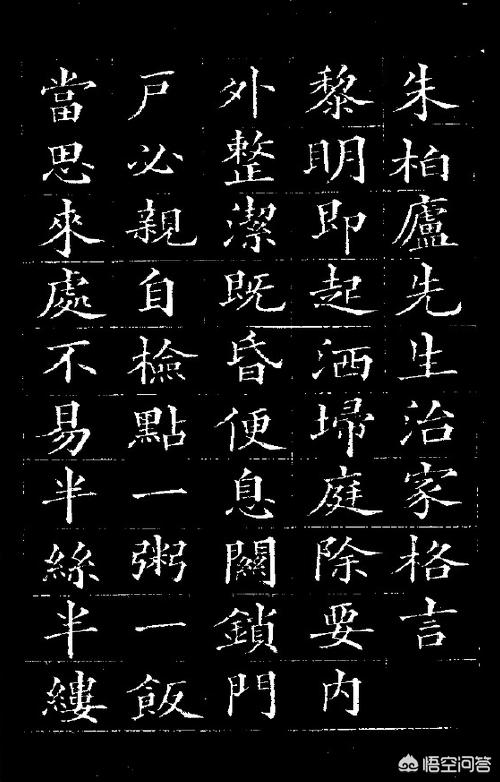 朱柏廬先生治家格言
黎明即起洒埽庭除要內
外整潔既昏便息關鎖門
戶必親自檢點一粥一飯
當思來處不易半絲半縷
悟空问答